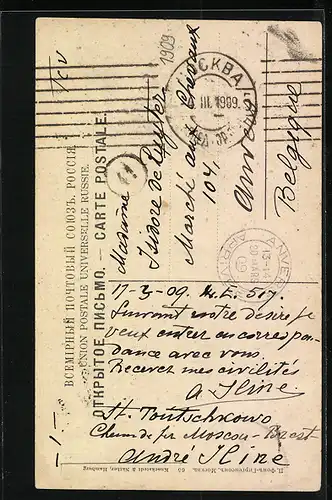 1909
ВСЕМІРНЫЙ ПОЧТОВЫЙ СОЮЗЪ. РОССІЯ.
UNION POSTALE UNIVERSELLE RUSSIE.
ОТКРЫТОЕ ПИСЬМО. — CARTE POSTALE.
МОСКВА
III. 1909.
Madame
Isidore de
Marché aux Chevaux
104,
Anvers
Belgique
ANVERS
09
17-3-09. N.E. 517.
Suivant votre désir je
veux entrer en correspon-
dance avec vous.
Recevez mes civilités
A Iline.
St. Poutschkowo
Chemin de fer Moscou-Brest
André Iline
П. Фонъ-Гиргенсонъ, Москва. 65 Knackstedt & Näther, Hamburg